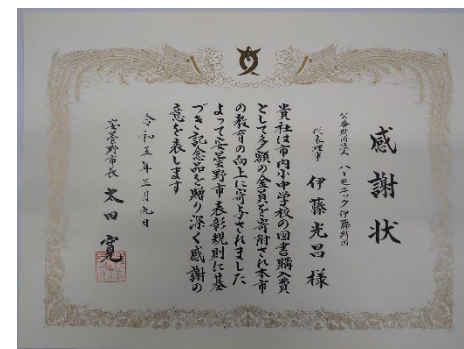 感謝状
公益財団法人 ハーモニック伊藤財団
代表理事 伊藤光昌様
貴社は市内小中学校の図書購入費
として多額の金員を寄附され本市
の教育の向上に寄与されました
よって安曇野市表彰規則に基
づき記念品を贈り深く感謝の
意を表します
令和五年三月九日
安曇野市長 太田寛